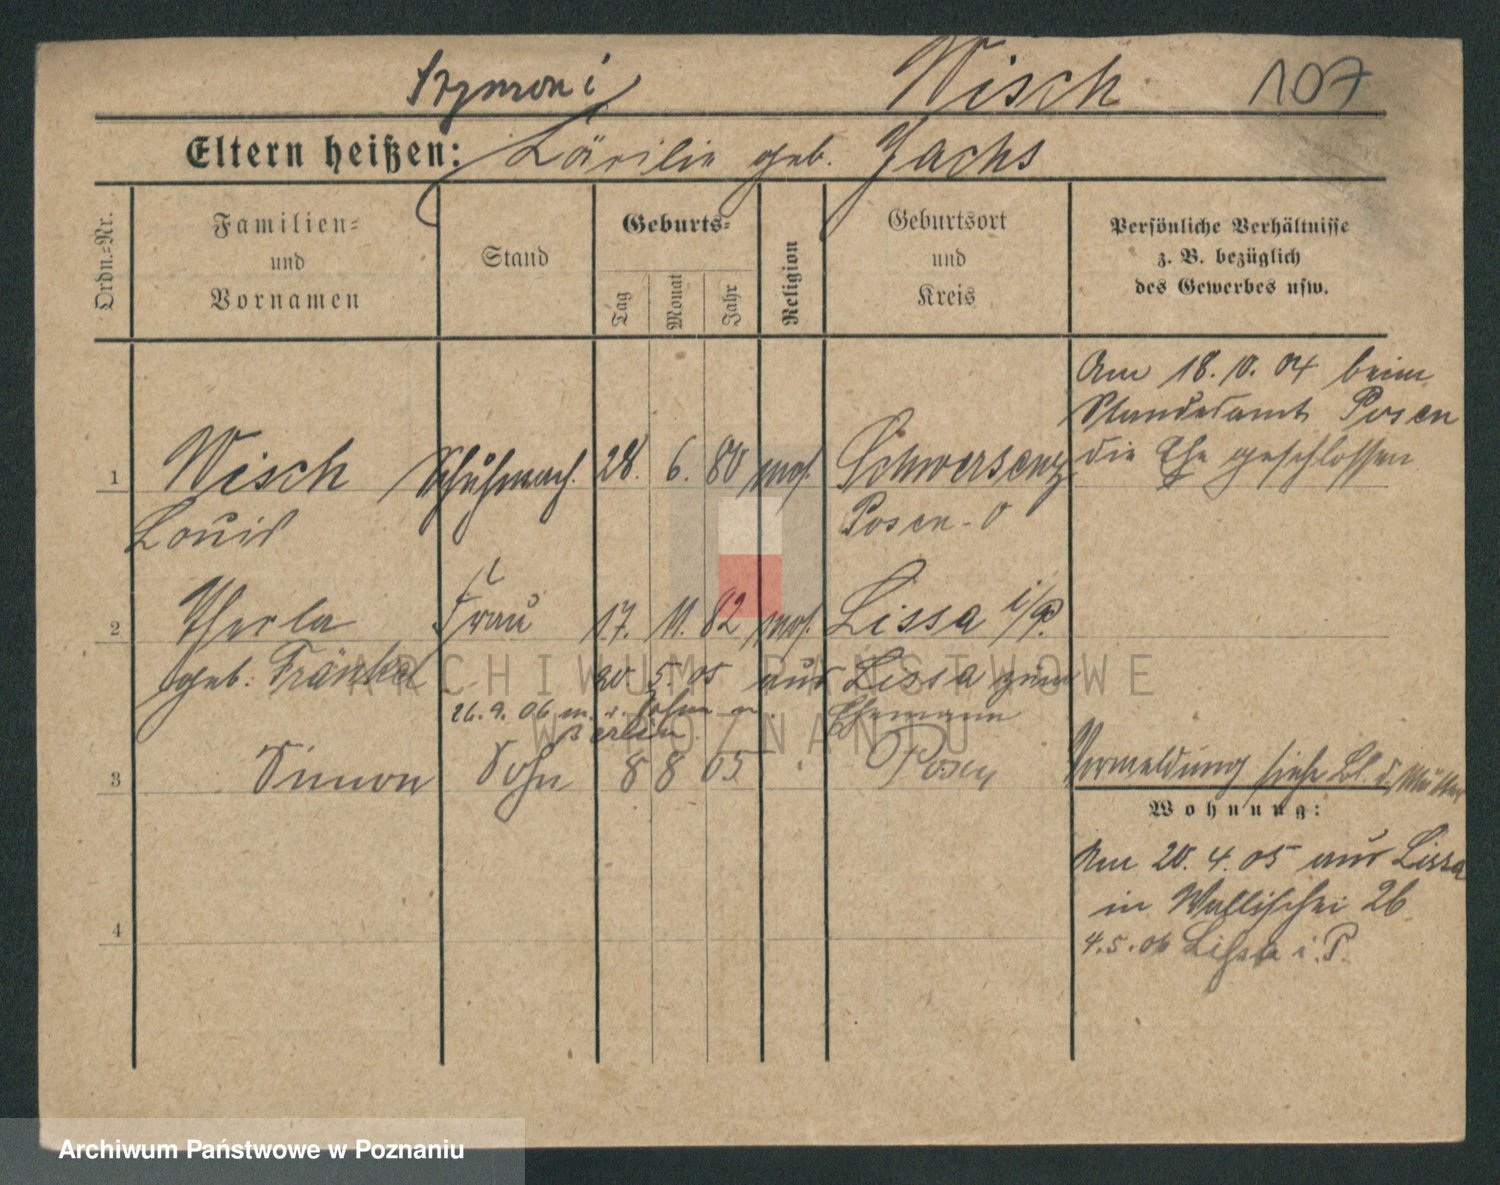 Szymoni Wisch 107
Eltern heißen: Cäcilie geb. Jachs
Ordn.-Nr.
Familien-
und
Vornamen
Stand
Geburts-
Tag
Monat
Jahr
Religion
Geburtsort
und
Kreis
Persönliche Verhältnisse
z. B. bezüglich
des Gewerbes usw.
Am 18. 10. 04 beim
Standesamt Posen
die Ehe geschlossen
1 Wisch Schuhmach. 28. 6. 80 mos. Schwersenz
Louis Posen-O
2 Frau 17. 11. 82 mos. Lissa i/P.
geb. Fränkel 20 5. 05 aus Lissa zum
26. 9. 06 m. Sohn n. Ehemann
Berlin
3 Simon Sohn 8 8 05 Posen
Vermeldung siehe Bl. d. Mutter
Wohnung:
Am 20. 4. 05 aus Lissa
in Wallischei 26
4
4. 5. 06 Lissa i. P.
ARCHIWUM PAŃSTWOWE
W POZNANIU
Archiwum Państwowe w Poznaniu